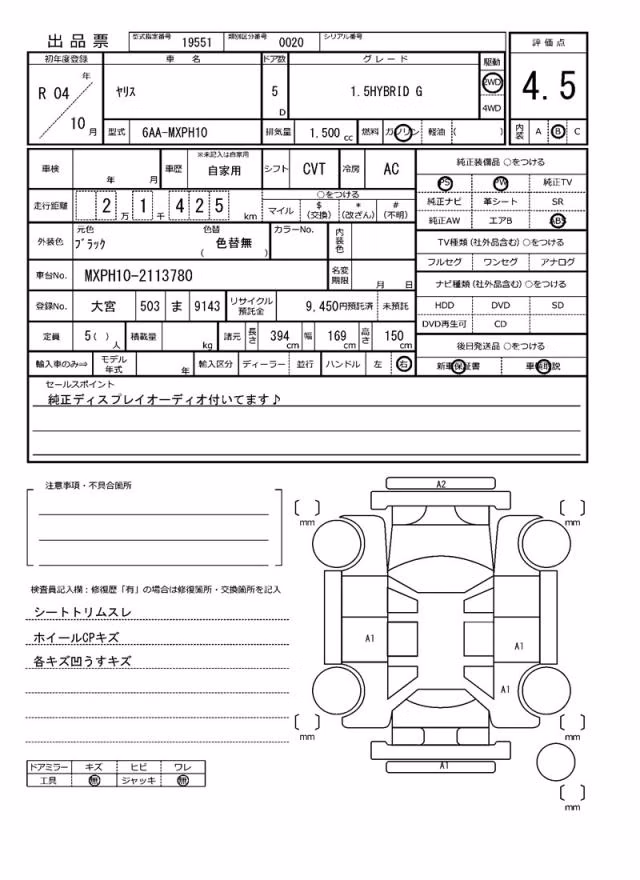 出品票
型式指定番号 19551 類別区分番号 0020 シリアル番号
初年度登録 車名 ドア数 グレード 駆動 評価点
R 04 年 10 月
ヤリス 5 D 1.5HYBRID G 2WD 4WD
4.5
型式 6AA-MXPH10 排気量 1.500 cc 燃料 ガソリン 軽油 ( )
内装 A B C
車検 年 月 車歴 ※未記入は自家用 自家用 シフト CVT 冷房 AC
走行距離 2 万 1 千 4 2 5 km
○をつける
マイル $ (交換) * (改ざん) # (不明)
外装色 元色 ブラック 色替 色替無 ( ) カラーNo. 内装色
車台No. MXPH10-2113780 名変期限 月 日
登録No. 大宮 503 ま 9143 リサイクル預託金 9.450円預託済 未預託
定員 5 ( ) 人 積載量 kg 諸元 長さ 394 cm 幅 169 cm 高さ 150 cm
輸入車のみ⇒ モデル年式 年 輸入区分 ディーラー 並行 ハンドル 左 右
純正装備品 ○をつける
PS PW 純正TV
純正ナビ 革シート SR
純正AW エアB ABS
TV種類 (社外品含む) ○をつける
フルセグ ワンセグ アナログ
ナビ種類 (社外品含む) ○をつける
HDD DVD SD
DVD再生可 CD
後日発送品 ○をつける
新車保証書 車輌取説
セールスポイント
純正ディスプレイオーディオ付いてます♪
注意事項・不具合箇所
検査員記入欄：修復歴「有」の場合は修復箇所・交換箇所を記入
シートトリムスレ
ホイールCPキズ
各キズ凹うすキズ
ドアミラー キズ ヒビ ワレ
工具 無 ジャッキ 無
A2
mm mm
A1 A1
A1
mm mm
A1
mm